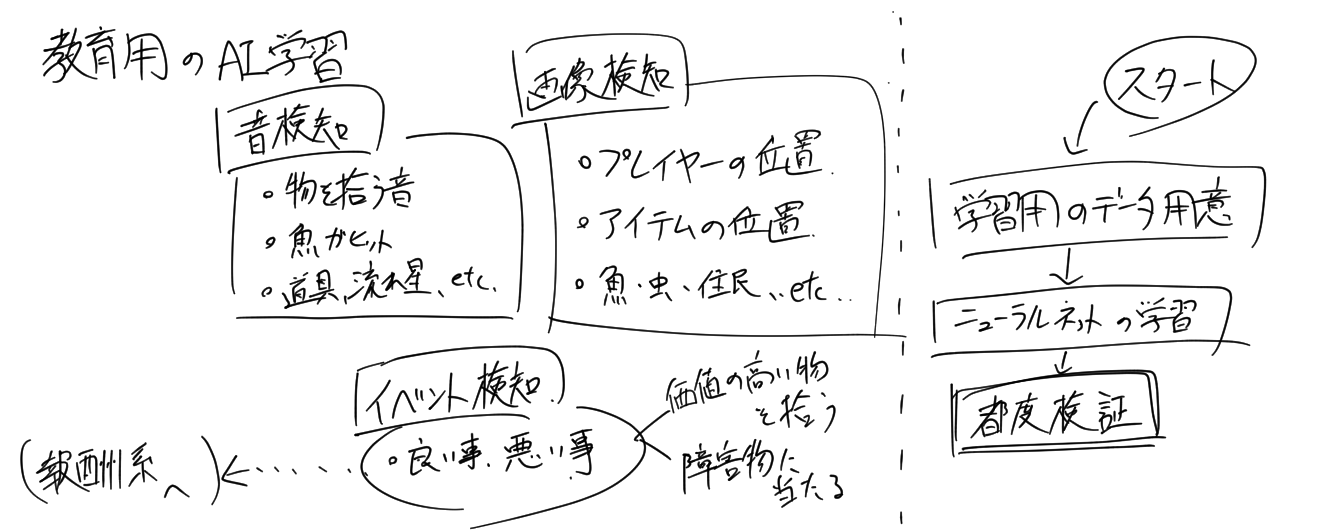 教育用のAI学習
音検知
・物を拾う音
・魚がヒット
・道具、流れ星、etc.
画像検知
・プレイヤーの位置
・アイテムの位置
・魚・虫・住民、etc..
イベント検知
・良い事、悪い事
価値の高い物
を拾う
障害物に
当たる
(報酬系へ)
スタート
学習用のデータ用意
ニューラルネットの学習
都度検証